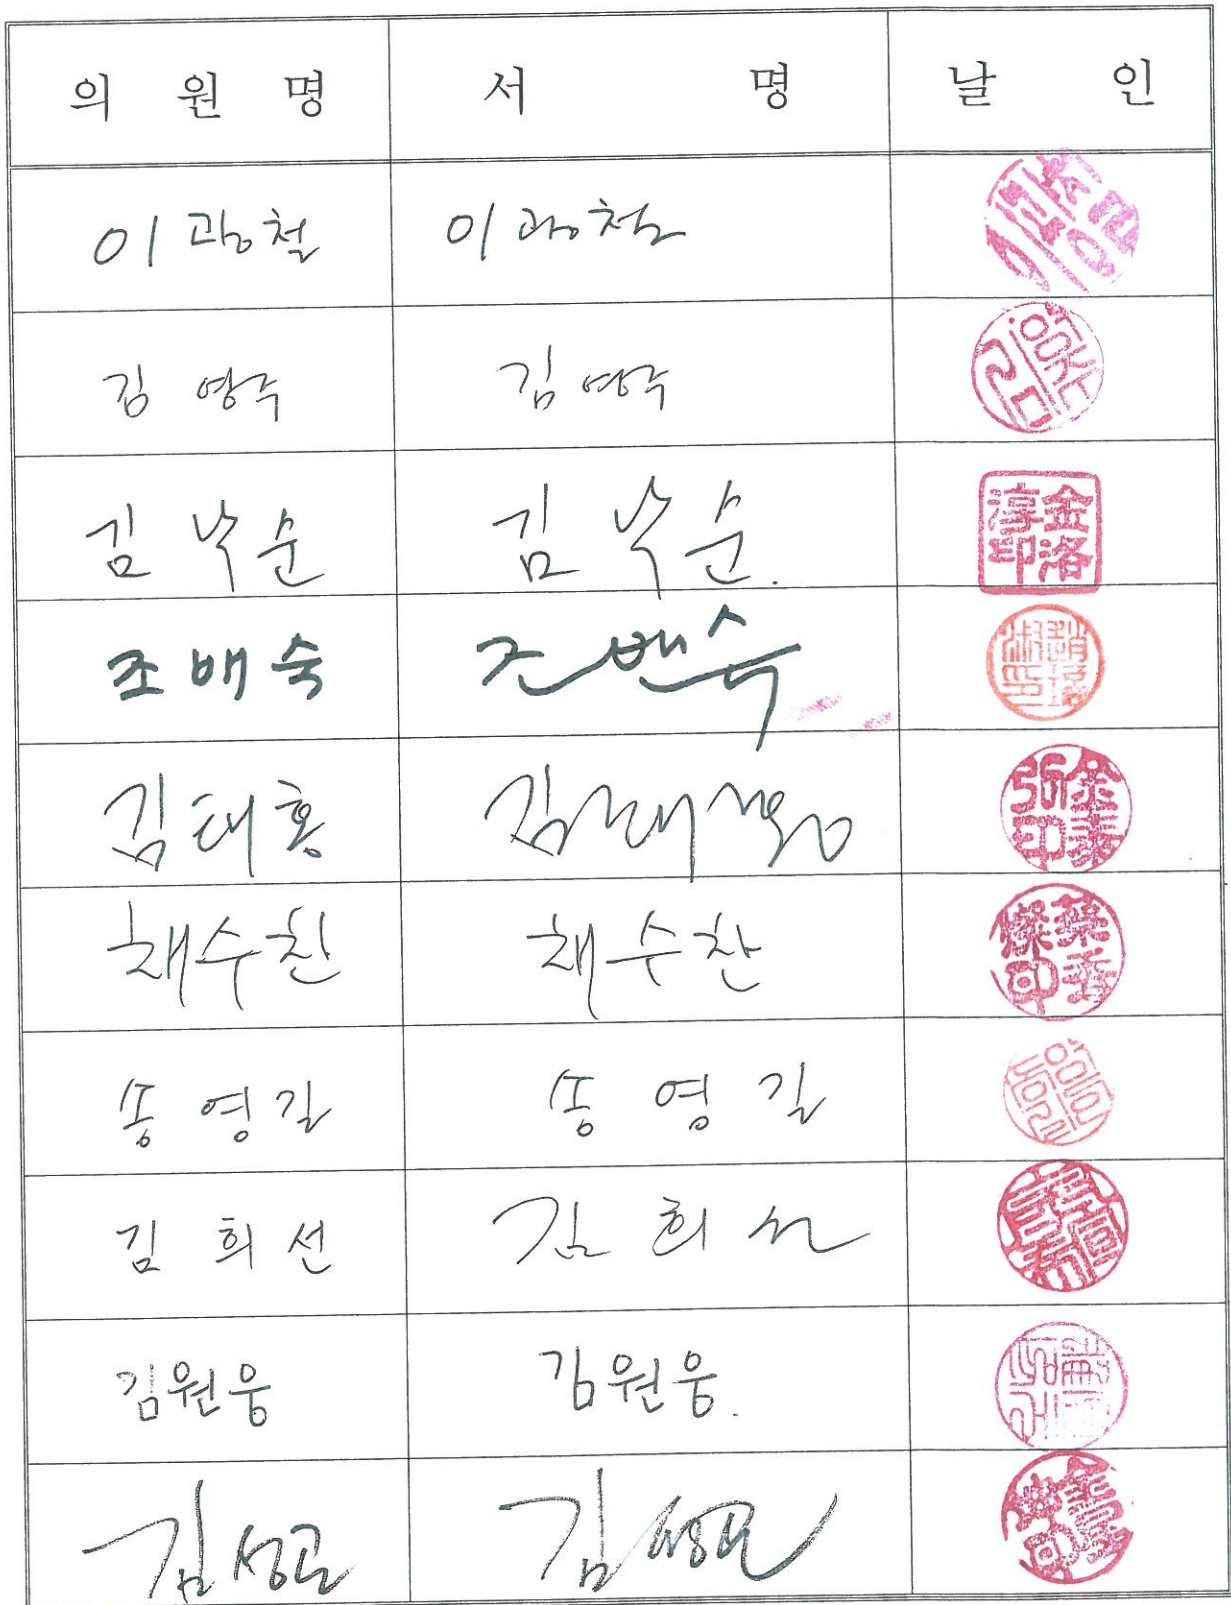 의 원 명 서 명 날 인
이광철 이광철
김영주 김영주
김낙순 김낙순. 金洛淳印
조배숙 조배숙
김태홍 김태홍
채수찬 채수찬
송영길 송영길
김희선 김희선
김원웅 김원웅.
김성곤 김성곤